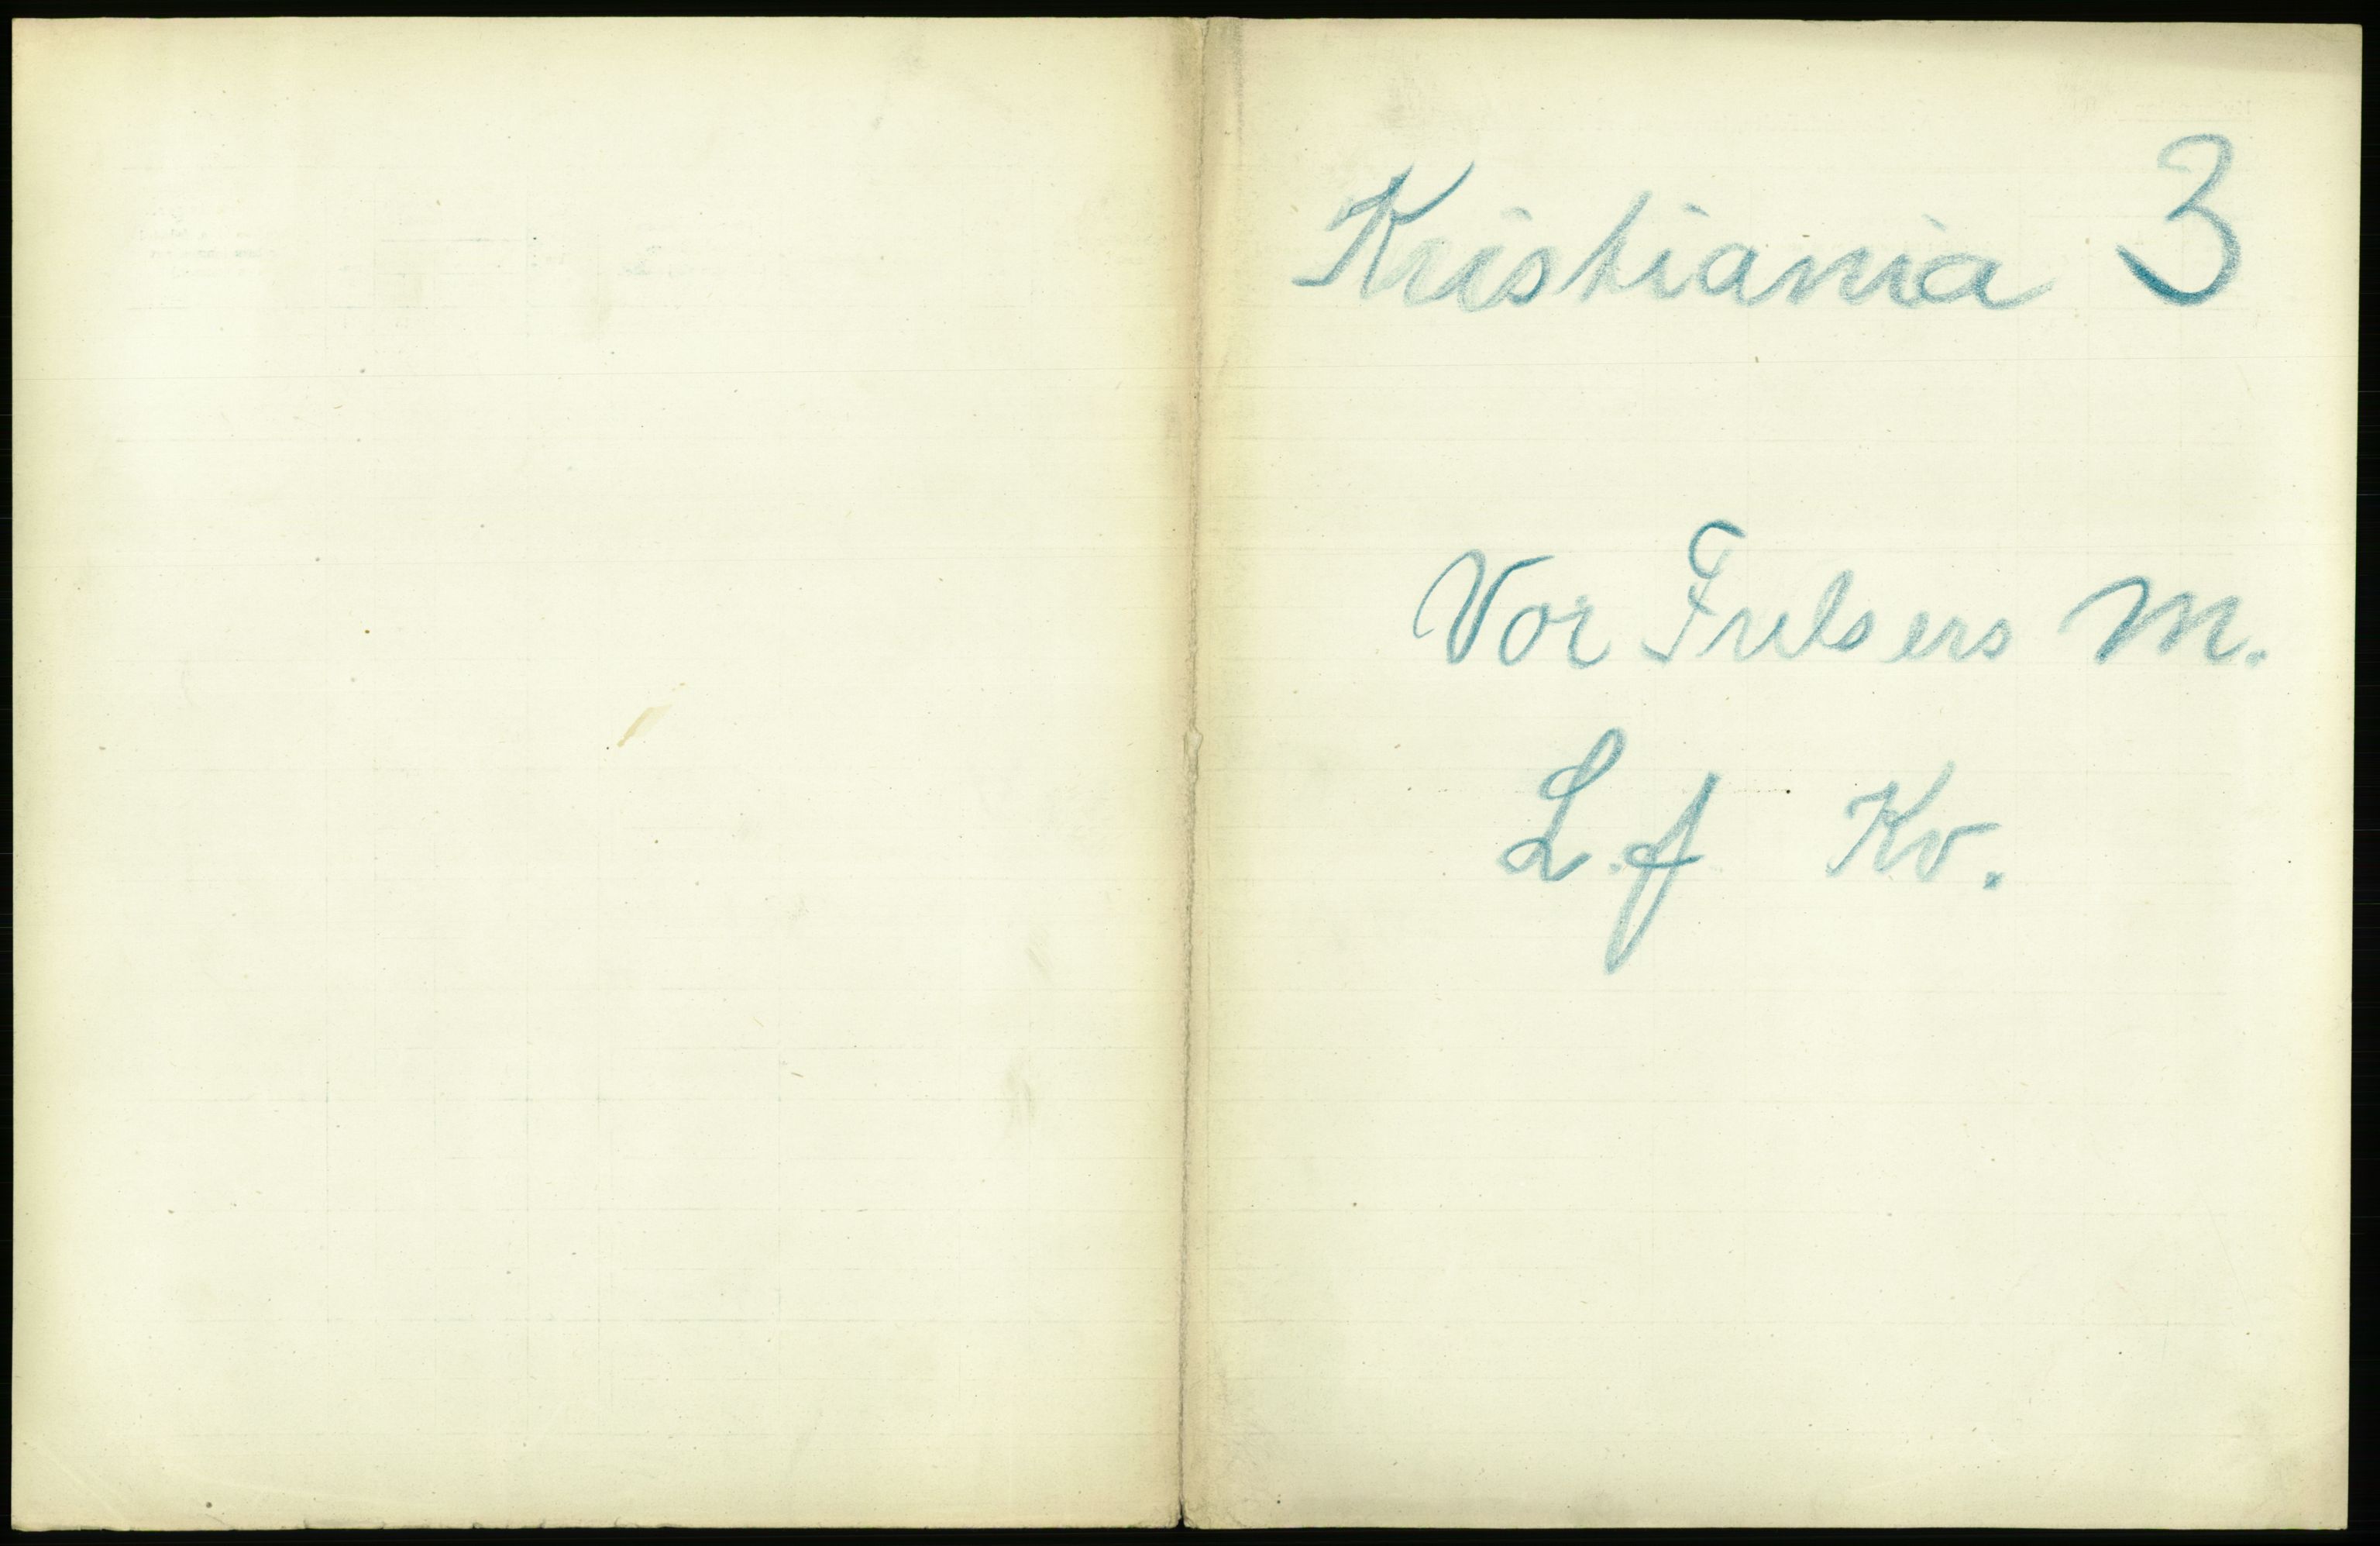 Kristiania 3
Vor Frelsers M.
L.f Kv.